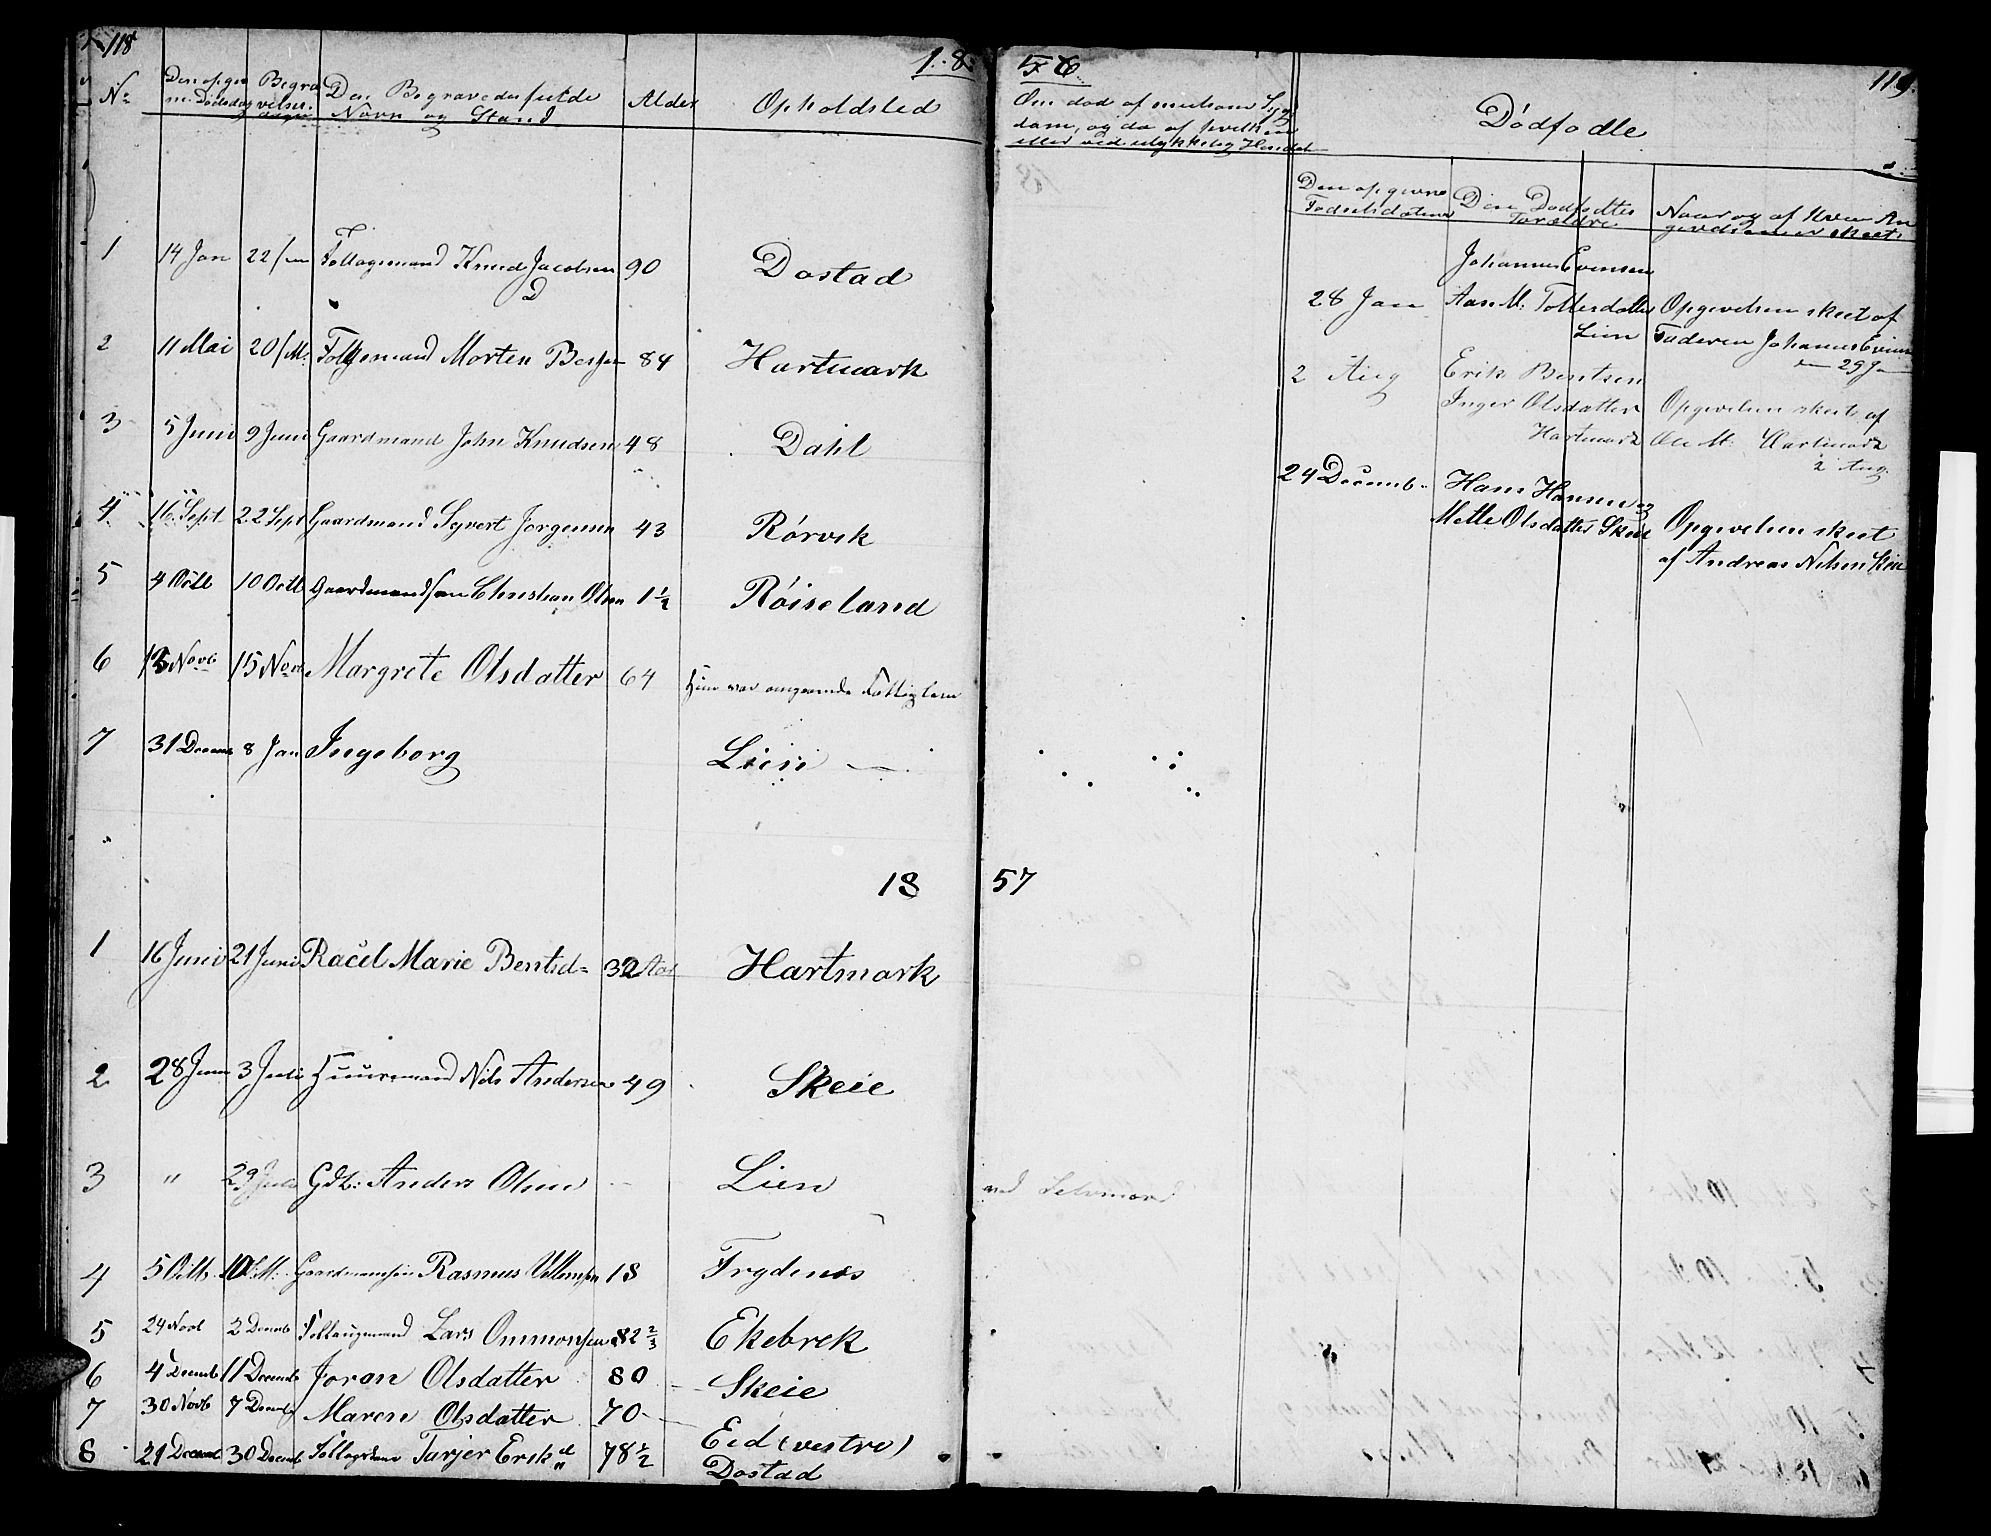 118
1.8.
56
119.
No
Den opgivne Dødsdag
Begravelsesdagen
Den Begravedes fulde Navn og Stand
Alder
Opholdsted
Om død af smitsom Syg
dom, og da af hvilken
eller ved ulykkelig Hendel
Dødfødte
Den opgivne Fødselsdatum
Den Dødfødtes Forældre
Naar og af hvem An
givelsen er skeet.
1 14 Jan 22 Jan Follagsmand Knud Jacobsen 90 Dostad
D
2 11 Mai 20/M. Morten 84 Hartmark
3 5 Juni 9 Juni Gaardmand John Knudsen 48 Dahl
4 16 Sept 22 Sept Gaardmand Syvert Jørgensen 43 Rørvik
5 4 Octb 10 Octb Gaardmandsøn Christian Olsen 1½ Røiseland
6 13 Novb 15 Nov Margrete Olsdatter 64 Hun var omgaaende Fattiglem
7 31 Decemb 8 Jan Ingeborg Lien
Johannes Evensen
28 Jan Aase M: Tollesdatter Opgivelsen skeet af
Lien Faderen Johannes Evens
29 J
2 Aug Erik Bentsen
Inger Olsdatter Opgivelsen skeet af
Hartmark Ole M. Hartmark
2 Aug.
24 Decemb. Hans Hansen
Mette Olsdatter Skeie Opgivelsen skeet
af Andreas Nilsen Skeie
18 57
1 16 Juni 21 Juni Racel Marie Bentsd= 32 Aar Hartmark
2 28 Juni 3 Juli Huusmand Nils Andersen 49 Skeie
3 " 29 Juli Gdb: Anders Olsen Lien ved Selvmord
4 5 Octb. 10 Gaardmansøn Rasmus 18 Frydenes
5 24 Novb 2 Decemb Follaugsmand Lars Ommonsen 82⅔ Ekebrek
6 4 Decemb 11 Decemb Joran Olsdatter 80 Skeie
7 30 Novb 7 Decemb Maren Olsdatter 70 Eid (vestre)
8 21 Decemb 30 Decemb Tarjer Ersk 78½ Dostad